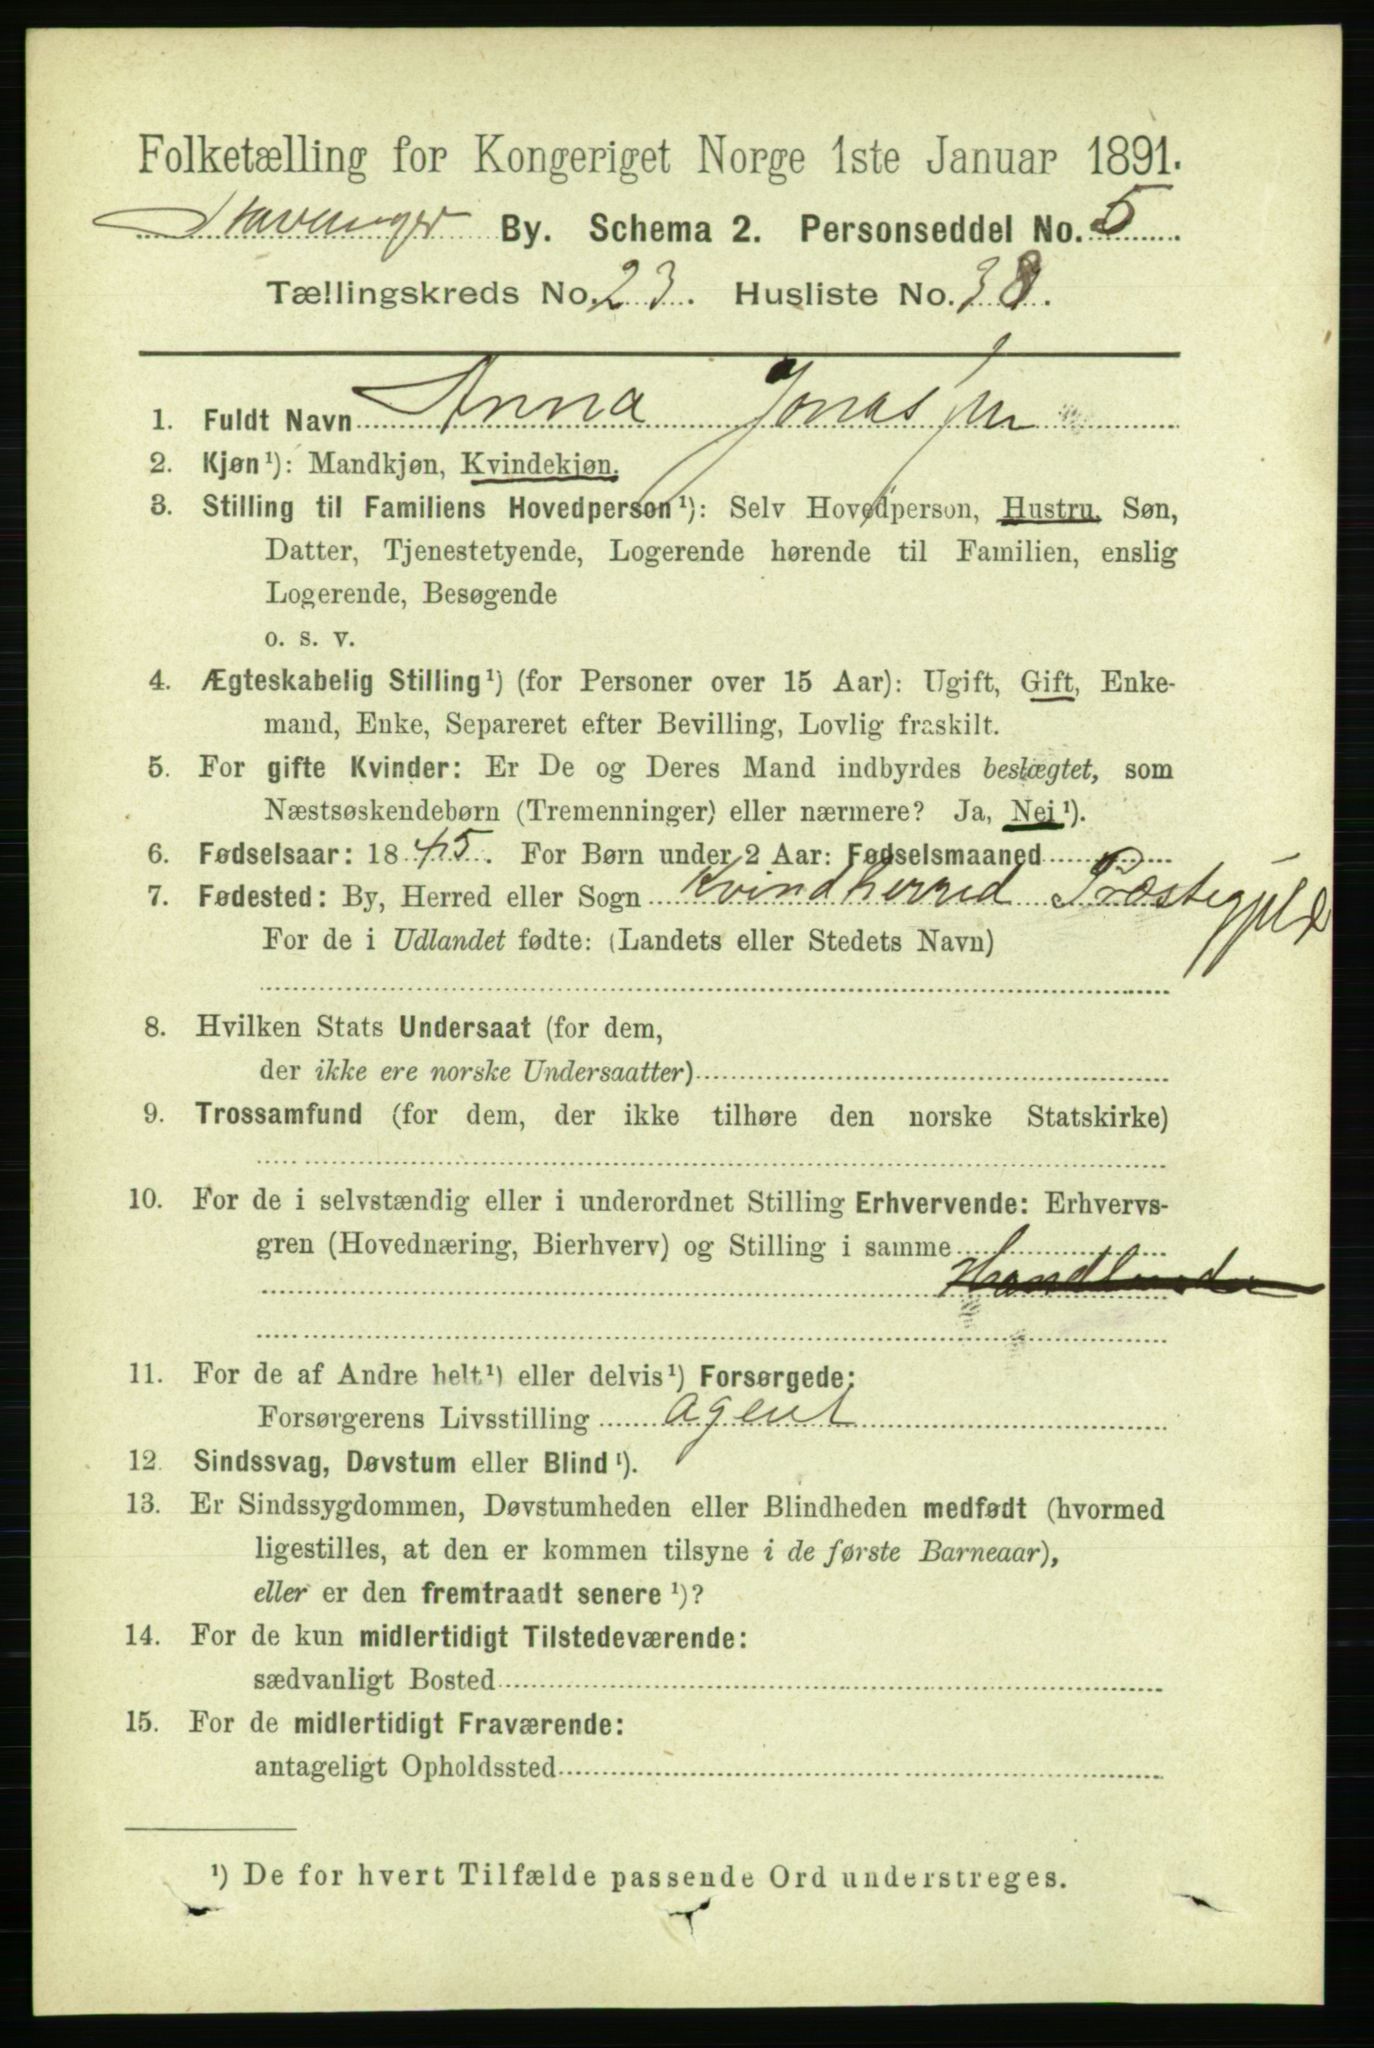 Folketælling for Kongeriget Norge 1ste Januar 1891.
Stavanger By. Schema 2. Personseddel No. 5
Tællingskreds No. 23. Husliste No. 38.
1. Fuldt Navn Anna Jonassen
2. Kjøn¹): Mandkjøn, Kvindekjøn.
3. Stilling til Familiens Hovedperson¹): Selv Hovedperson, Hustru, Søn,
Datter, Tjenestetyende, Logerende hørende til Familien, enslig
Logerende, Besøgende
o. s. v.
4. Ægteskabelig Stilling¹) (for Personer over 15 Aar): Ugift, Gift, Enke-
mand, Enke, Separeret efter Bevilling, Lovlig fraskilt.
5. For gifte Kvinder: Er De og Deres Mand indbyrdes beslægtet, som
Næstsøskendebørn (Tremenninger) eller nærmere? Ja, Nei¹).
6. Fødselsaar: 1845. For Børn under 2 Aar: Fødselsmaaned
7. Fødested: By, Herred eller Sogn Kvindherred Præstegjeld
For de i Udlandet fødte: (Landets eller Stedets Navn)
8. Hvilken Stats Undersaat (for dem,
der ikke ere norske Undersaatter)
9. Trossamfund (for dem, der ikke tilhøre den norske Statskirke)
10. For de i selvstændig eller i underordnet Stilling Erhvervende: Erhvervs-
gren (Hovednæring, Bierhverv) og Stilling i samme
11. For de af Andre helt¹) eller delvis¹) Forsørgede:
Forsørgerens Livsstilling Agent
12. Sindssvag, Døvstum eller Blind¹).
13. Er Sindssygdommen, Døvstumheden eller Blindheden medfødt (hvormed
ligestilles, at den er kommen tilsyne i de første Barneaar),
eller er den fremtraadt senere¹)?
14. For de kun midlertidigt Tilstedeværende:
sædvanligt Bosted
15. For de midlertidigt Fraværende:
antageligt Opholdssted
¹) De for hvert Tilfælde passende Ord understreges.